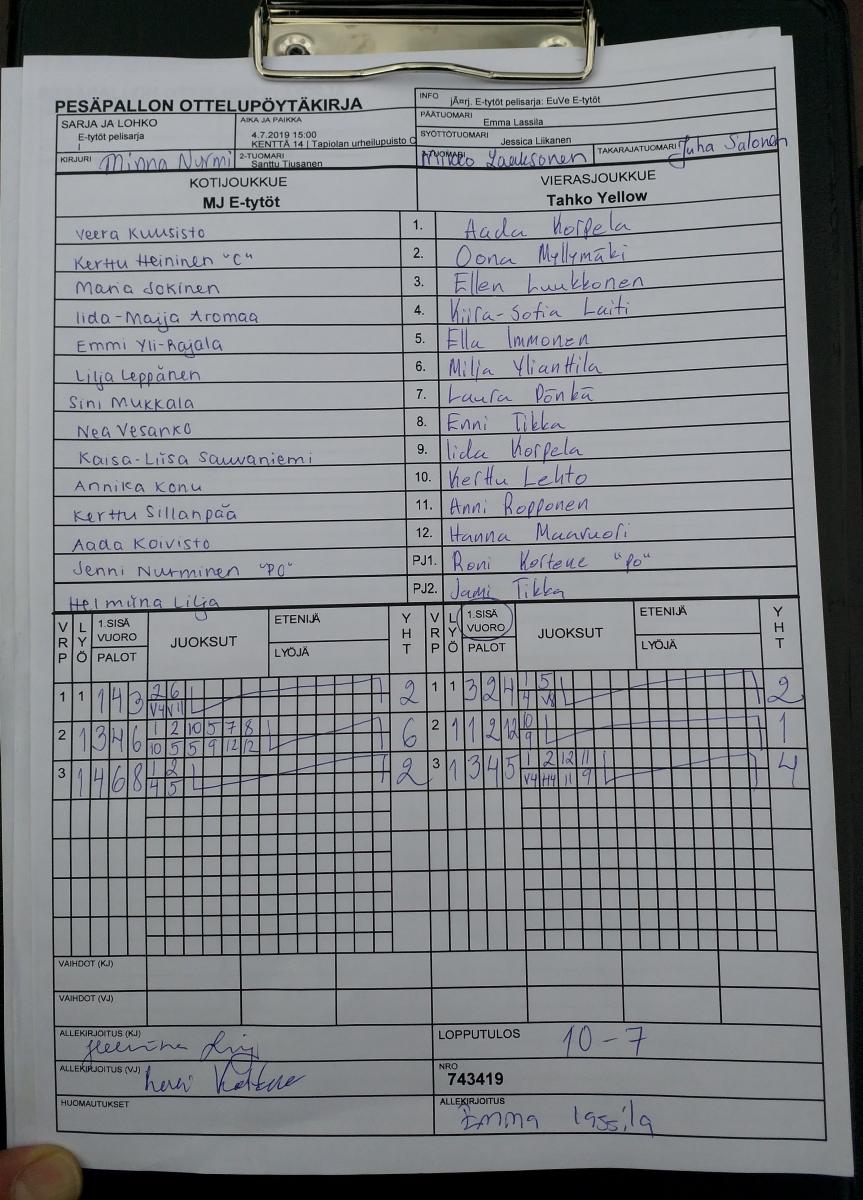 PESÄPALLON OTTELUPÖYTÄKIRJA
INFO jÃ¤rj. E-tytöt pelisarja: EuVe E-tytöt
SARJA JA LOHKO
E-tytöt pelisarja
I
AIKA JA PAIKKA
4.7.2019 15:00
KENTTÄ 14 | Tapiolan urheilupuisto
PÄÄTUOMARI
Emma Lassila
SYÖTTÖTUOMARI
Jessica Liikanen
KIRJURI Minna Nurmi
2-TUOMARI
Santtu Tiusanen
Mikko Laaksonen
TAKARAJATUOMARI Juha Salonen
KOTIJOUKKUE
MJ E-tytöt
VIERASJOUKKUE
Tahko Yellow
Veera Kuusisto 1. Aada Korpela
Kerttu Heininen "C" 2. Oona Myllymäki
Maria Jokinen 3. Ellen Luukkonen
Iida-Maija Aromaa 4. Kiira-Sofia Laiti
Emmi Yli-Rajala 5. Ella Immonen
Lilja Leppänen 6. Milja Ylianttila
Sini Mukkala 7. Laura Pönkä
Nea Vesanko 8. Enni Tikka
Kaisa-Liisa Sauvaniemi 9. Iida Korpela
Annika Konu 10. Kerttu Lehto
Kerttu Sillanpää 11. Anni Ropponen
Aada Koivisto 12. Hanna Maavuori
Jenni Nurminen "PO" PJ1. Roni Kortene "po"
Helmiina Lilja PJ2. Jami Tikka
VRP LYÖ 1.SISÄ VUORO PALOT JUOKSUT ETENIJÄ LYÖJÄ YHT VRP LYÖ 1.SISÄ VUORO PALOT JUOKSUT ETENIJÄ LYÖJÄ YHT
1 1 1 4 3 2 6 2 1 1 3 2 4 1 5 2
V4 V11 4 V8
2 1 3 4 6 1 2 10 5 7 8 6 2 1 1 2 12 10 1
10 5 5 9 12 12 9
3 1 4 6 8 1 2 2 3 1 3 4 5 1 2 12 11 4
4 5 V4 H4 11 9
VAIHDOT (KJ)
VAIHDOT (VJ)
ALLEKIRJOITUS (KJ)
LOPPUTULOS 10-7
ALLEKIRJOITUS (VJ)
NRO
743419
HUOMAUTUKSET
ALLEKIRJOITUS
Emma Lassila